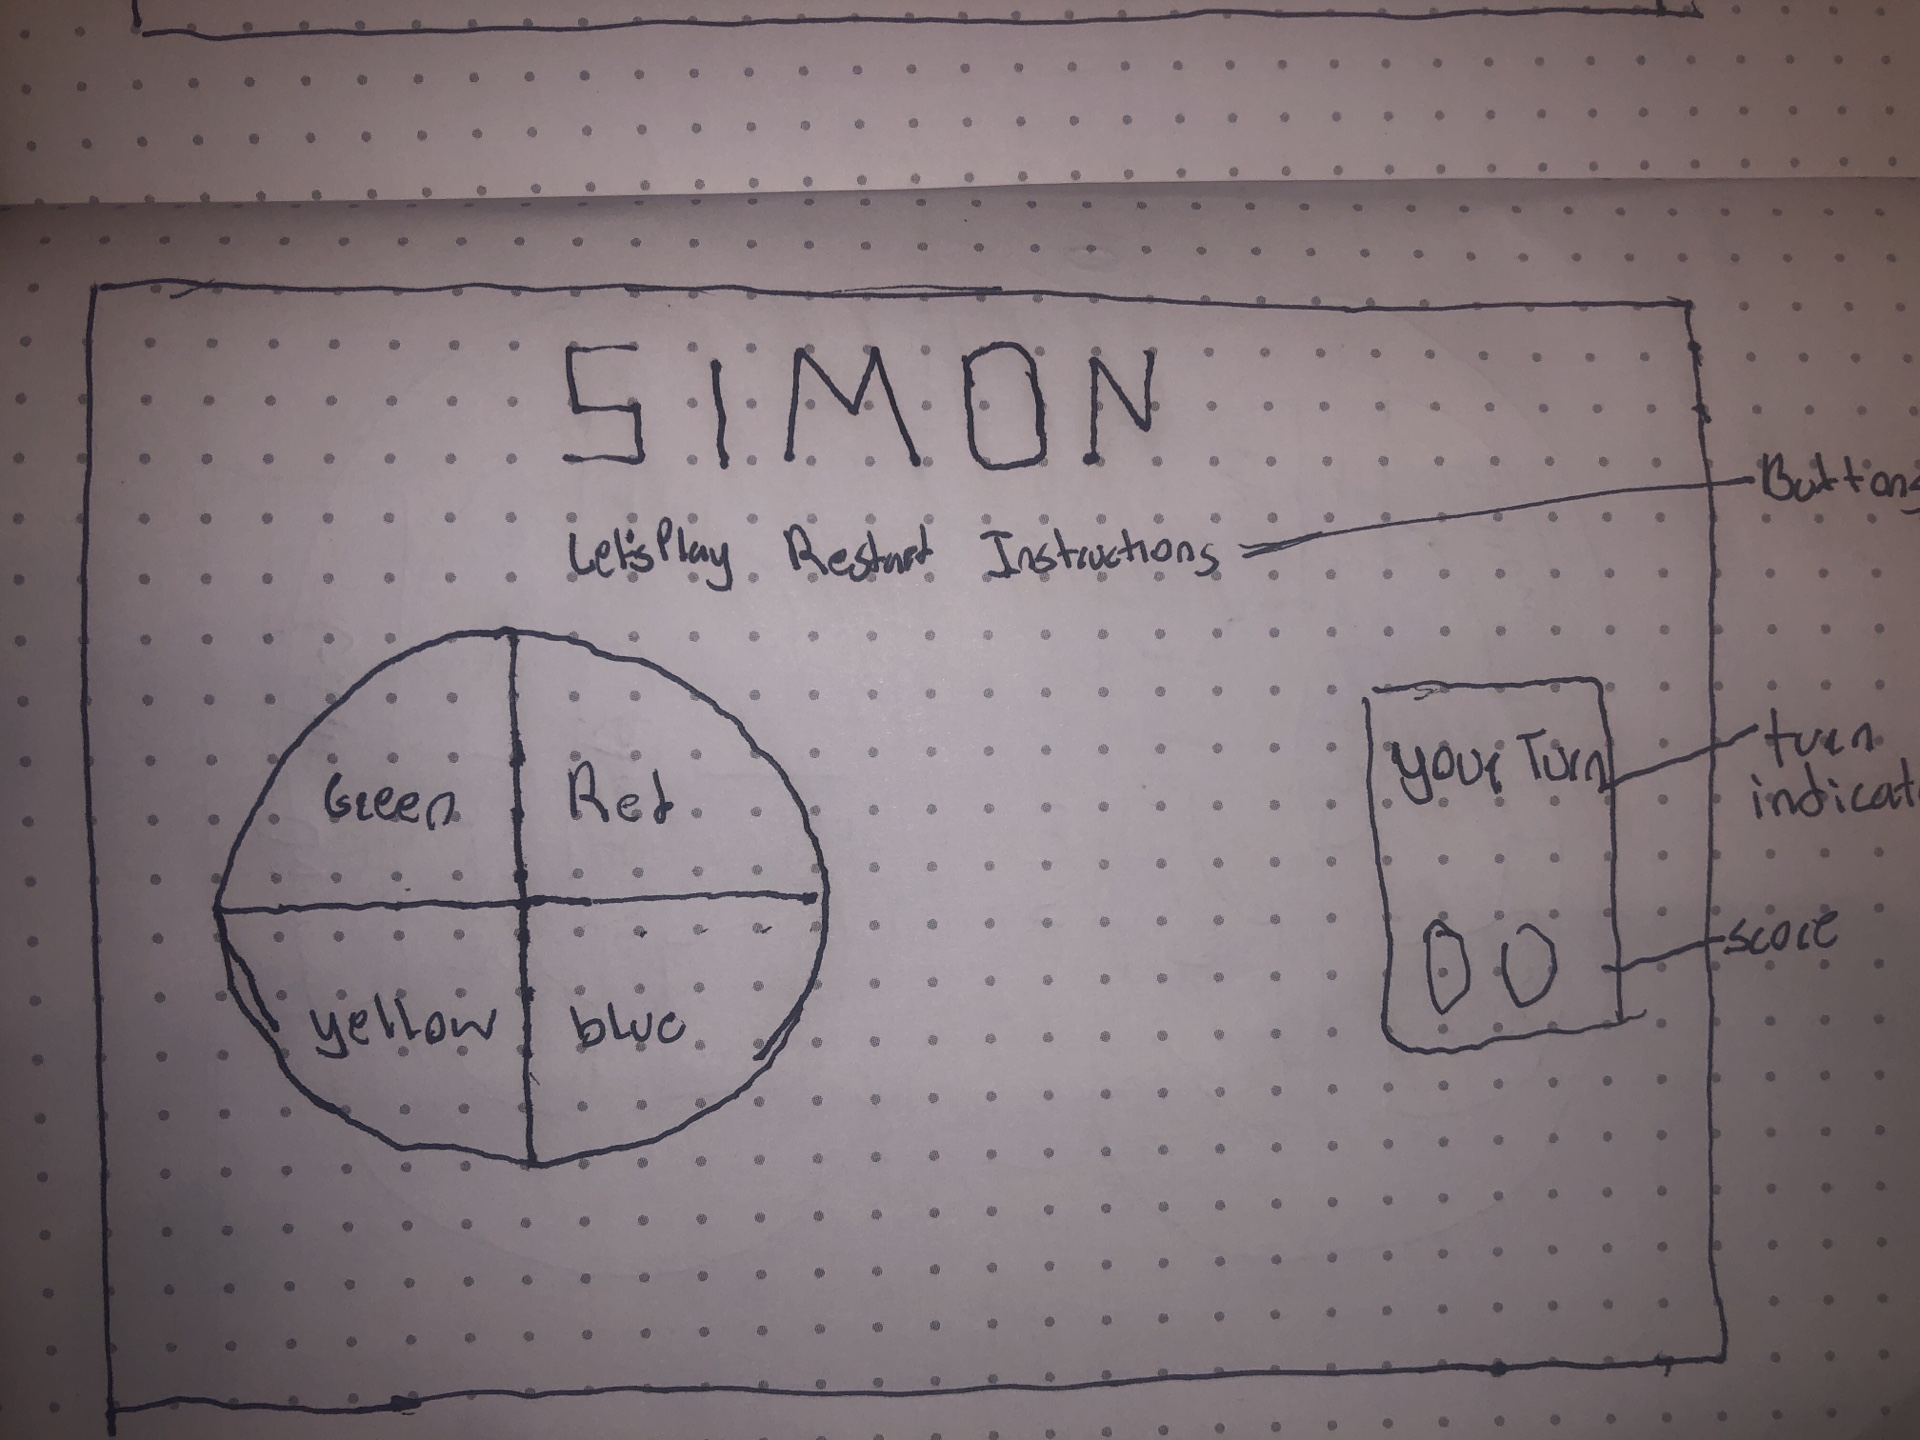 SIMON
Let's Play Restart Instructions
Buttons
Green Red
yellow blue
your Turn
00
turn
indicat
score